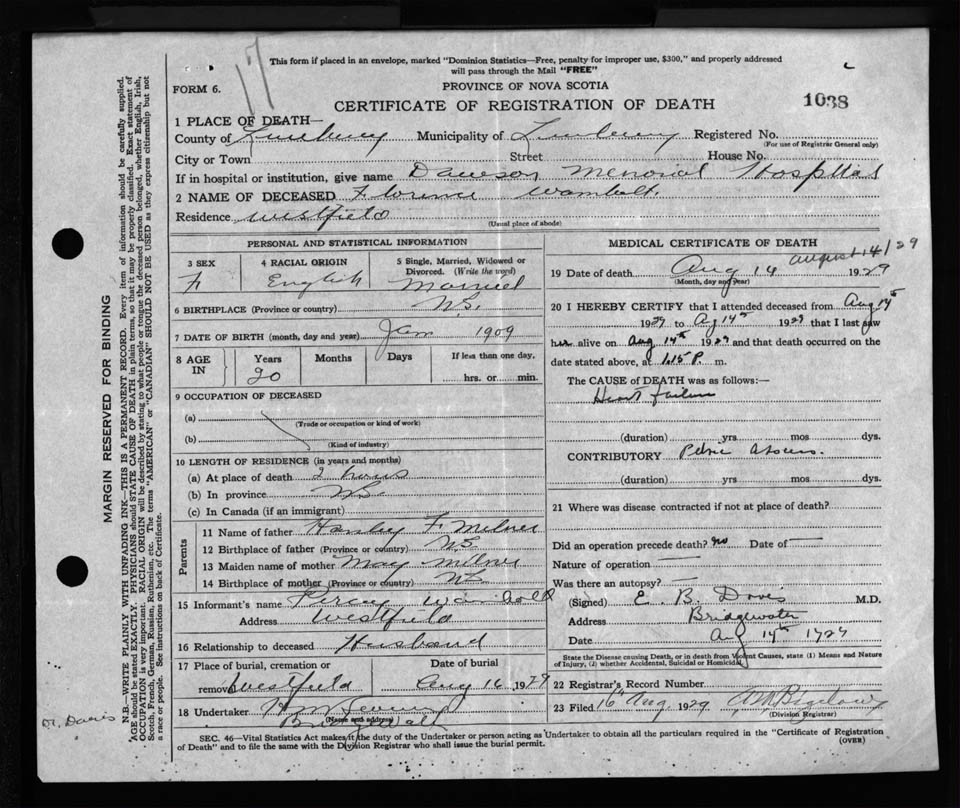 17
This form if placed in an envelope, marked "Dominion Statistics—Free, penalty for improper use, $300," and properly addressed
will pass through the Mail "FREE"
FORM 6.
PROVINCE OF NOVA SCOTIA
CERTIFICATE OF REGISTRATION OF DEATH
1038
1 PLACE OF DEATH—
County of Lunenburg Municipality of Lunenburg Registered No.
(For use of Registrar General only)
City or Town Street House No.
If in hospital or institution, give name Dawson Memorial Hospital
2 NAME OF DECEASED Florence Wambolt.
Residence Westfield
(Usual place of abode)
PERSONAL AND STATISTICAL INFORMATION
3 SEX 4 RACIAL ORIGIN 5 Single, Married, Widowed or
Divorced. (Write the word)
F English Married
6 BIRTHPLACE (Province or country) N.S.
7 DATE OF BIRTH (month, day and year) Jan 1909
8 AGE IN Years Months Days If less than one day.
20 hrs. or min.
9 OCCUPATION OF DECEASED
(a)
(Trade or occupation or kind of work)
(b)
(Kind of industry)
10 LENGTH OF RESIDENCE (in years and months)
(a) At place of death 2 hours
(b) In province N.S.
(c) In Canada (if an immigrant)
Parents
11 Name of father F. Milner
12 Birthplace of father (Province or country) N.S
13 Maiden name of mother May Milner
14 Birthplace of mother (Province or country) NS
15 Informant's name Percy Wambolt
Address Westfield
16 Relationship to deceased Husband
17 Place of burial, cremation or Date of burial
removal Westfield Aug 16 1929
18 Undertaker
(Name and address)
MEDICAL CERTIFICATE OF DEATH
August 14/29
19 Date of death Aug 14 1929
(Month, day and year)
20 I HEREBY CERTIFY that I attended deceased from Aug 14th
1929 to Ag 14th 1929 that I last saw
her alive on Aug 14th 1929 and that death occurred on the
date stated above, at 1.15 P. m.
The CAUSE of DEATH was as follows:—
Heart failure
(duration) yrs mos dys.
CONTRIBUTORY Pelvic Abscess.
(duration) yrs. mos dys.
21 Where was disease contracted if not at place of death?
Did an operation precede death? no Date of —
Nature of operation —
Was there an autopsy? —
(Signed) E. B. M.D.
Address Bridgewater
Date Aug 14th 1929
State the Disease causing Death, or in death from Violent Causes, state (1) Means and Nature
of Injury, (2) whether Accidental, Suicidal or Homicidal
22 Registrar's Record Number
23 Filed 16th Aug 1929
(Division Registrar)
SEC. 46—Vital Statistics Act makes it the duty of the Undertaker or person acting as Undertaker to obtain all the particulars required in the "Certificate of Registration
of Death" and to file the same with the Division Registrar who shall issue the burial permit.
(OVER)
MARGIN RESERVED FOR BINDING
N.B.—WRITE PLAINLY WITH UNFADING INK—THIS IS A PERMANENT RECORD. Every item of information should be carefully supplied.
AGE should be stated EXACTLY. PHYSICIANS should STATE CAUSE OF DEATH in plain terms, so that it may be properly classified. Exact statement of
OCCUPATION is very important. RACIAL ORIGIN will be described by stating to what people or tongue the deceased person belonged, whether English, Irish,
Scotch, French, German, Russian, Ruthenian, etc. The terms "AMERICAN" or "CANADIAN" SHOULD NOT BE USED as they express citizenship but not
a race or people. See instructions on back of Certificate.